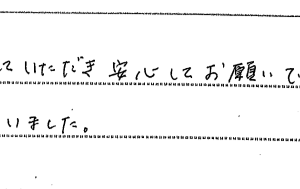 ていただき安心してお願いで
いました。